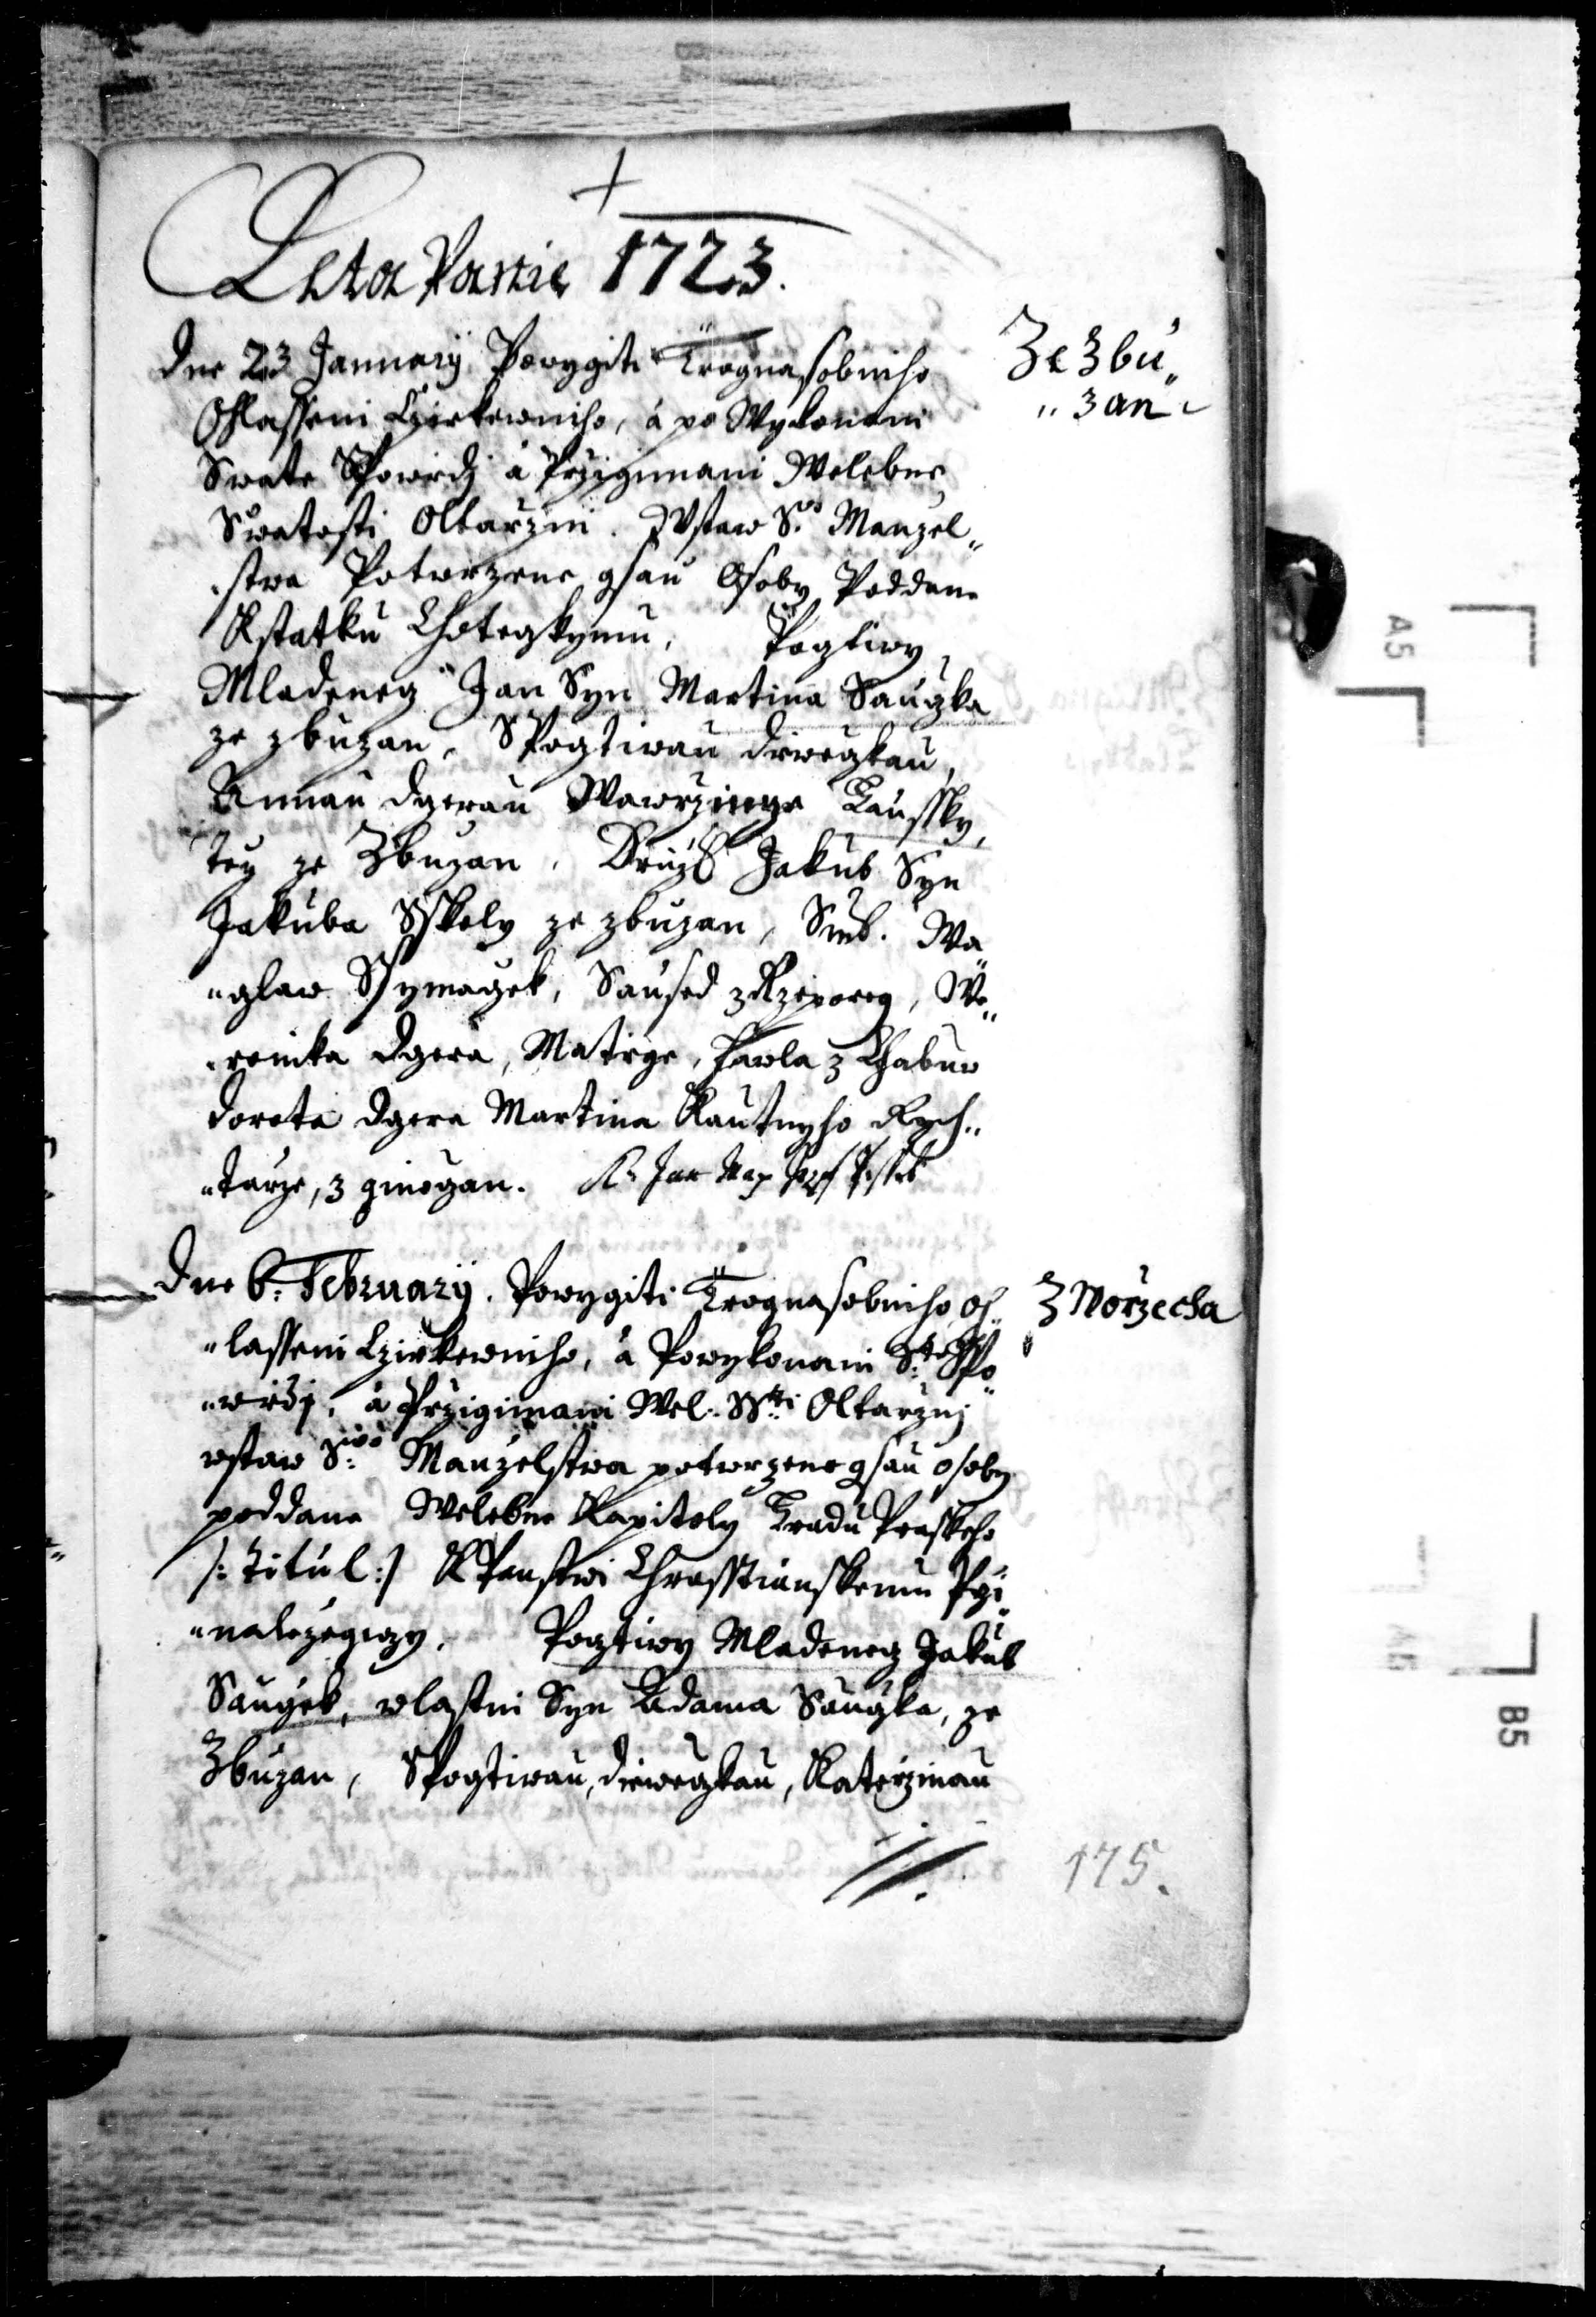 Leta Panie 1723.
Dne 23 Januarij Powygiti Trognasobniho
Ohlasseni Czirkewniho, a po Wykonani
Swate Spowidi a Przigimani Welebne
Swatosti Oltarzni. Wstaw S:ho Manzel„
„stwa Potwrzene gsau Osoby Poddane
Kstatku Chotegkymu, Pogtiwy
Mladeneg Jan Syn Martina Saugka
ze zbuzan, Spogtiwau diwegkau,
Annau dgerau Wawrzinge Kaussky,
Teg ze Zbuzan. Druzb Jakub Syn
Jakuba Sskoly ze zbuzan, Swd. Wa„
„glaw Ssymagek, Saused z Rzeporeg, We„
„ronika dgera, Matiege, Pawla z Chabuw
dorota dgera Martina Kautnyho Rych„
„tarze, z ginogan. Jan
Ze Zbu„
„zan
Dne 6: Februarij. Powygiti Trognasobniho Oh„
„lasseni Czirkewniho, a Powykonani S:te Spo„
„widi, a Przigimani Wel: Sstti Oltarznj
wstaw S:ho Manzelstwa potwrzene gsau osoby
poddane Welebne Kapitoly Hradu Praskeho
/: titul :/ KPanstwi Chrasstianskemu Pri„
„nalezegigy. Pogtiwy Mladeneg Jakub
Saugek, wlastni Syn Adama Saugka, ze
Zbuzan, Spogtiwau, diewegkau, Katerzinau
Z Worzecha
175.
A5
B5